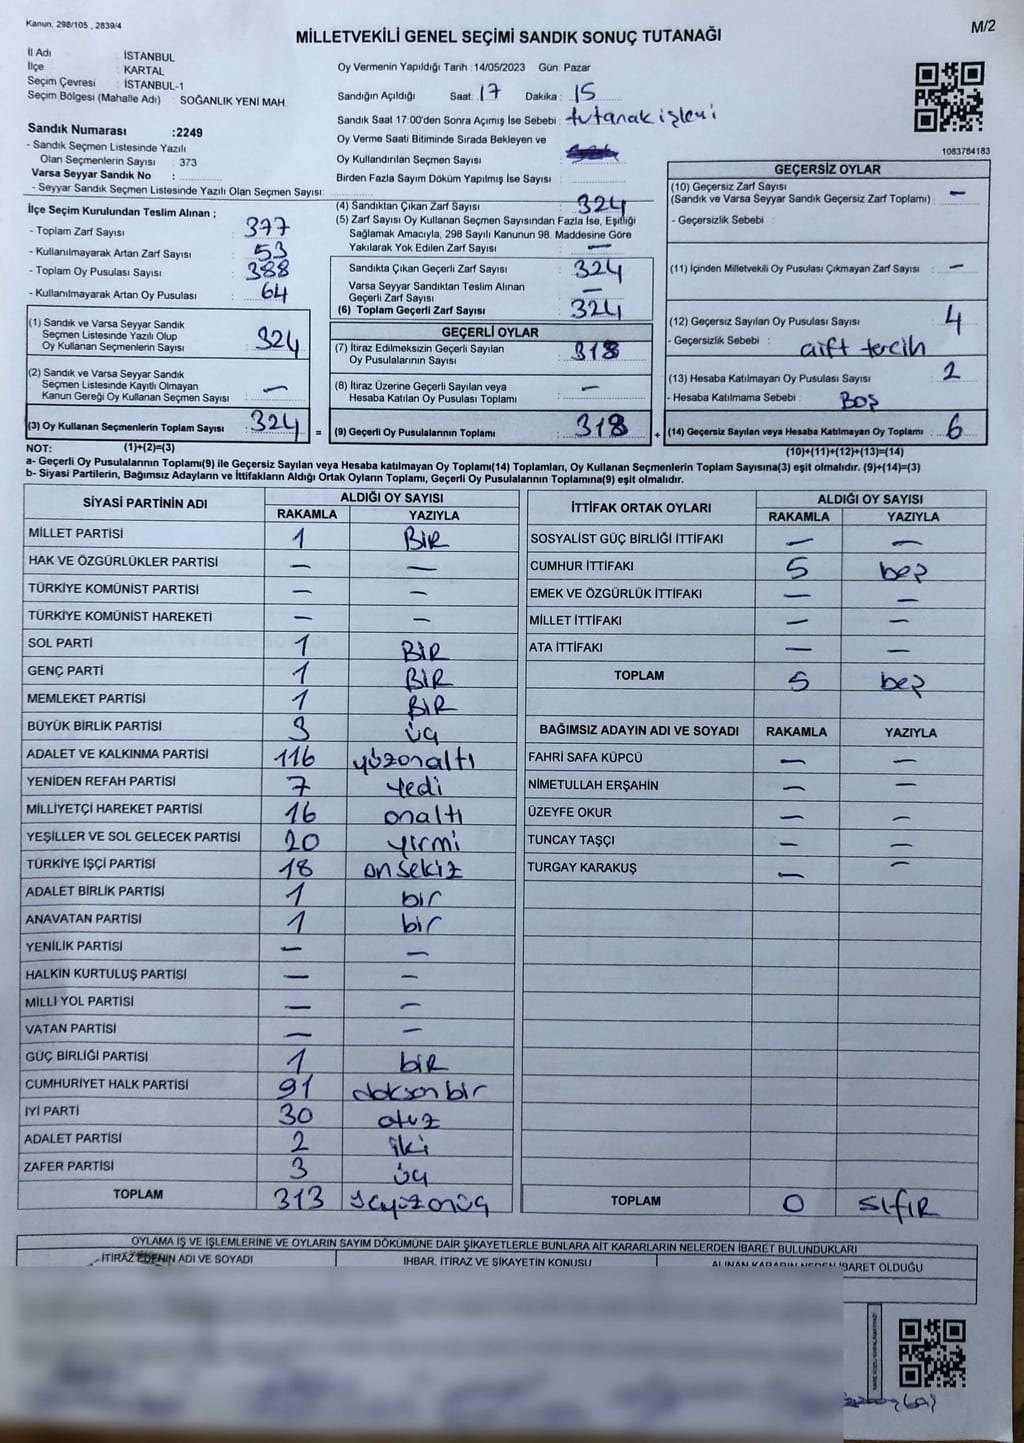 Kanun, 298/105 , 2839/4
M/2
MİLLETVEKİLİ GENEL SEÇİMİ SANDIK SONUÇ TUTANAĞI
İl Adı : İSTANBUL
İlçe : KARTAL
Seçim Çevresi : İSTANBUL-1
Seçim Bölgesi (Mahalle Adı) : SOĞANLIK YENİ MAH.
Sandık Numarası :2249
- Sandık Seçmen Listesinde Yazılı
Olan Seçmenlerin Sayısı : 373
Varsa Seyyar Sandık No :
- Seyyar Sandık Seçmen Listesinde Yazılı Olan Seçmen Sayısı:
Oy Vermenin Yapıldığı Tarih :14/05/2023 Gün: Pazar
Sandığın Açıldığı Saat: 17 Dakika : 15
Sandık Saat 17:00'den Sonra Açımış İse Sebebi : tutanak işlemi
Oy Verme Saati Bitiminde Sırada Bekleyen ve
Oy Kullandırılan Seçmen Sayısı :
Birden Fazla Sayım Döküm Yapılmış İse Sayısı :
1083784183
İlçe Seçim Kurulundan Teslim Alınan ;
- Toplam Zarf Sayısı : 377
- Kullanılmayarak Artan Zarf Sayısı : 53
- Toplam Oy Pusulası Sayısı : 388
- Kullanılmayarak Artan Oy Pusulası : 64
(1) Sandık ve Varsa Seyyar Sandık
Seçmen Listesinde Yazılı Olup
Oy Kullanan Seçmenlerin Sayısı : 324
(2) Sandık ve Varsa Seyyar Sandık
Seçmen Listesinde Kayıtlı Olmayan
Kanun Gereği Oy Kullanan Seçmen Sayısı : —
(3) Oy Kullanan Seçmenlerin Toplam Sayısı : 324 =
(4) Sandıktan Çıkan Zarf Sayısı : 324
(5) Zarf Sayısı Oy Kullanan Seçmen Sayısından Fazla İse, Eşitliği
Sağlamak Amacıyla, 298 Sayılı Kanunun 98. Maddesine Göre
Yakılarak Yok Edilen Zarf Sayısı : —
Sandıkta Çıkan Geçerli Zarf Sayısı : 324
Varsa Seyyar Sandıktan Teslim Alınan
Geçerli Zarf Sayısı : —
(6) Toplam Geçerli Zarf Sayısı : 324
GEÇERLİ OYLAR
(7) İtiraz Edilmeksizin Geçerli Sayılan
Oy Pusulalarının Sayısı : 318
(8) İtiraz Üzerine Geçerli Sayılan veya
Hesaba Katılan Oy Pusulası Toplamı : —
(9) Geçerli Oy Pusulalarının Toplamı : 318 +
GEÇERSİZ OYLAR
(10) Geçersiz Zarf Sayısı
(Sandık ve Varsa Seyyar Sandık Geçersiz Zarf Toplamı) : —
- Geçersizlik Sebebi :
(11) İçinden Milletvekili Oy Pusulası Çıkmayan Zarf Sayısı : —
(12) Geçersiz Sayılan Oy Pusulası Sayısı : 4
- Geçersizlik Sebebi : çift tercih
(13) Hesaba Katılmayan Oy Pusulası Sayısı : 2
- Hesaba Katılmama Sebebi : BOŞ
(14) Geçersiz Sayılan veya Hesaba Katılmayan Oy Toplamı : 6
NOT: (1)+(2)=(3)
(10)+(11)+(12)+(13)=(14)
a- Geçerli Oy Pusulalarının Toplamı(9) ile Geçersiz Sayılan veya Hesaba katılmayan Oy Toplamı(14) Toplamları, Oy Kullanan Seçmenlerin Toplam Sayısına(3) eşit olmalıdır. (9)+(14)=(3)
b- Siyasi Partilerin, Bağımsız Adayların ve İttifakların Aldığı Ortak Oyların Toplamı, Geçerli Oy Pusulalarının Toplamına(9) eşit olmalıdır.
SİYASİ PARTİNİN ADI ALDIĞI OY SAYISI
RAKAMLA YAZIYLA
MİLLET PARTİSİ 1 BİR
HAK VE ÖZGÜRLÜKLER PARTİSİ — —
TÜRKİYE KOMÜNİST PARTİSİ — —
TÜRKİYE KOMÜNİST HAREKETİ — —
SOL PARTİ 1 BİR
GENÇ PARTİ 1 BİR
MEMLEKET PARTİSİ 1 BİR
BÜYÜK BİRLİK PARTİSİ 3 üç
ADALET VE KALKINMA PARTİSİ 116 yüzonaltı
YENİDEN REFAH PARTİSİ 7 yedi
MİLLİYETÇİ HAREKET PARTİSİ 16 onaltı
YEŞİLLER VE SOL GELECEK PARTİSİ 20 yirmi
TÜRKİYE İŞÇİ PARTİSİ 18 onsekiz
ADALET BİRLİK PARTİSİ 1 bir
ANAVATAN PARTİSİ 1 bir
YENİLİK PARTİSİ — —
HALKIN KURTULUŞ PARTİSİ — —
MİLLİ YOL PARTİSİ — —
VATAN PARTİSİ — —
GÜÇ BİRLİĞİ PARTİSİ 1 bir
CUMHURİYET HALK PARTİSİ 91 doksanbir
İYİ PARTİ 30 otuz
ADALET PARTİSİ 2 iki
ZAFER PARTİSİ 3 üç
TOPLAM 313 üçyüzonüç
İTTİFAK ORTAK OYLARI ALDIĞI OY SAYISI
RAKAMLA YAZIYLA
SOSYALİST GÜÇ BİRLİĞİ İTTİFAKI — —
CUMHUR İTTİFAKI 5 beş
EMEK VE ÖZGÜRLÜK İTTİFAKI — —
MİLLET İTTİFAKI — —
ATA İTTİFAKI — —
TOPLAM 5 beş
BAĞIMSIZ ADAYIN ADI VE SOYADI RAKAMLA YAZIYLA
FAHRİ SAFA KÜPCÜ — —
NİMETULLAH ERŞAHİN — —
ÜZEYFE OKUR — —
TUNCAY TAŞÇI — —
TURGAY KARAKUŞ — —
TOPLAM 0 sıfır
OYLAMA İŞ VE İŞLEMLERİNE VE OYLARIN SAYIM DÖKÜMÜNE DAİR ŞİKAYETLERLE BUNLARA AİT KARARLARIN NELERDEN İBARET BULUNDUKLARI
İTİRAZ EDENİN ADI VE SOYADI İHBAR, İTİRAZ VE ŞİKAYETİN KONUSU ALINAN KARARIN NEDEN İBARET OLDUĞU